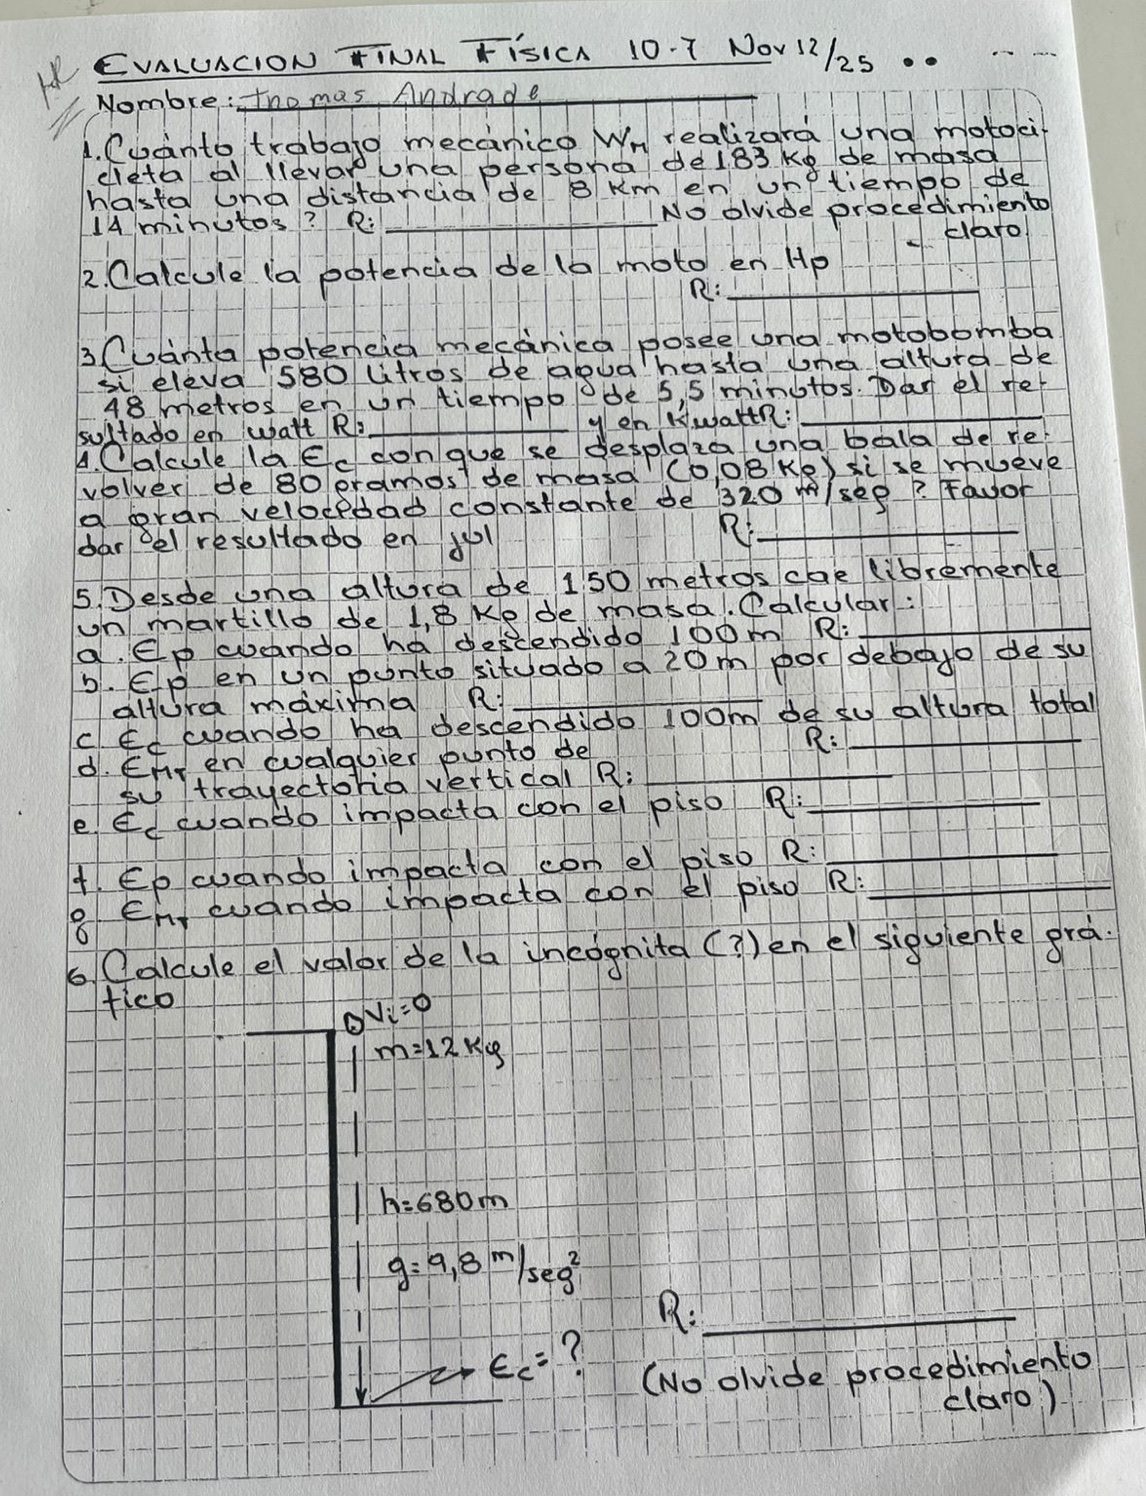 EVALUACION FINAL FÍSICA 10-7 Nov 12/25
Nombre: Thomas Andrade
1. Cuánto trabajo mecánico WM realizará una motoci-
cleta al llevar una persona de 183 Kg de masa
hasta una distancia de 8 Km en un tiempo de
14 minutos? R: ____ No olvide procedimiento
claro
2. Calcule la potencia de la moto en Hp
R: ____
3. Cuánta potencia mecánica posee una motobomba
si eleva 580 litros de agua hasta una altura de
48 metros en un tiempo de 5,5 minutos. Dar el re-
sultado en watt R: ____ y en Kwatt R: ____
4. Calcule la Ec con que se desplaza una bala de re-
volver de 80 gramos de masa (0,08 Kg) si se mueve
a gran velocidad constante de 320 m/seg? Favor
dar el resultado en jul R: ____
5. Desde una altura de 150 metros cae libremente
un martillo de 1,8 Kg de masa. Calcular:
a. Ep cuando ha descendido 100m R: ____
b. Ep en un punto situado a 20m por debajo de su
altura máxima R: ____
c. Ec cuando ha descendido 100m de su altura total
R: ____
d. EMT en cualquier punto de
su trayectoria vertical R: ____
e. Ec cuando impacta con el piso R: ____
f. Ep cuando impacta con el piso R: ____
g. EMT cuando impacta con el piso R: ____
6. Calcule el valor de la incógnita (?) en el siguiente grá-
fico
Vi=0
m=12 Kg
h=680m
g=9,8 m/seg²
R: ____
Ec=?
(No olvide procedimiento
claro)